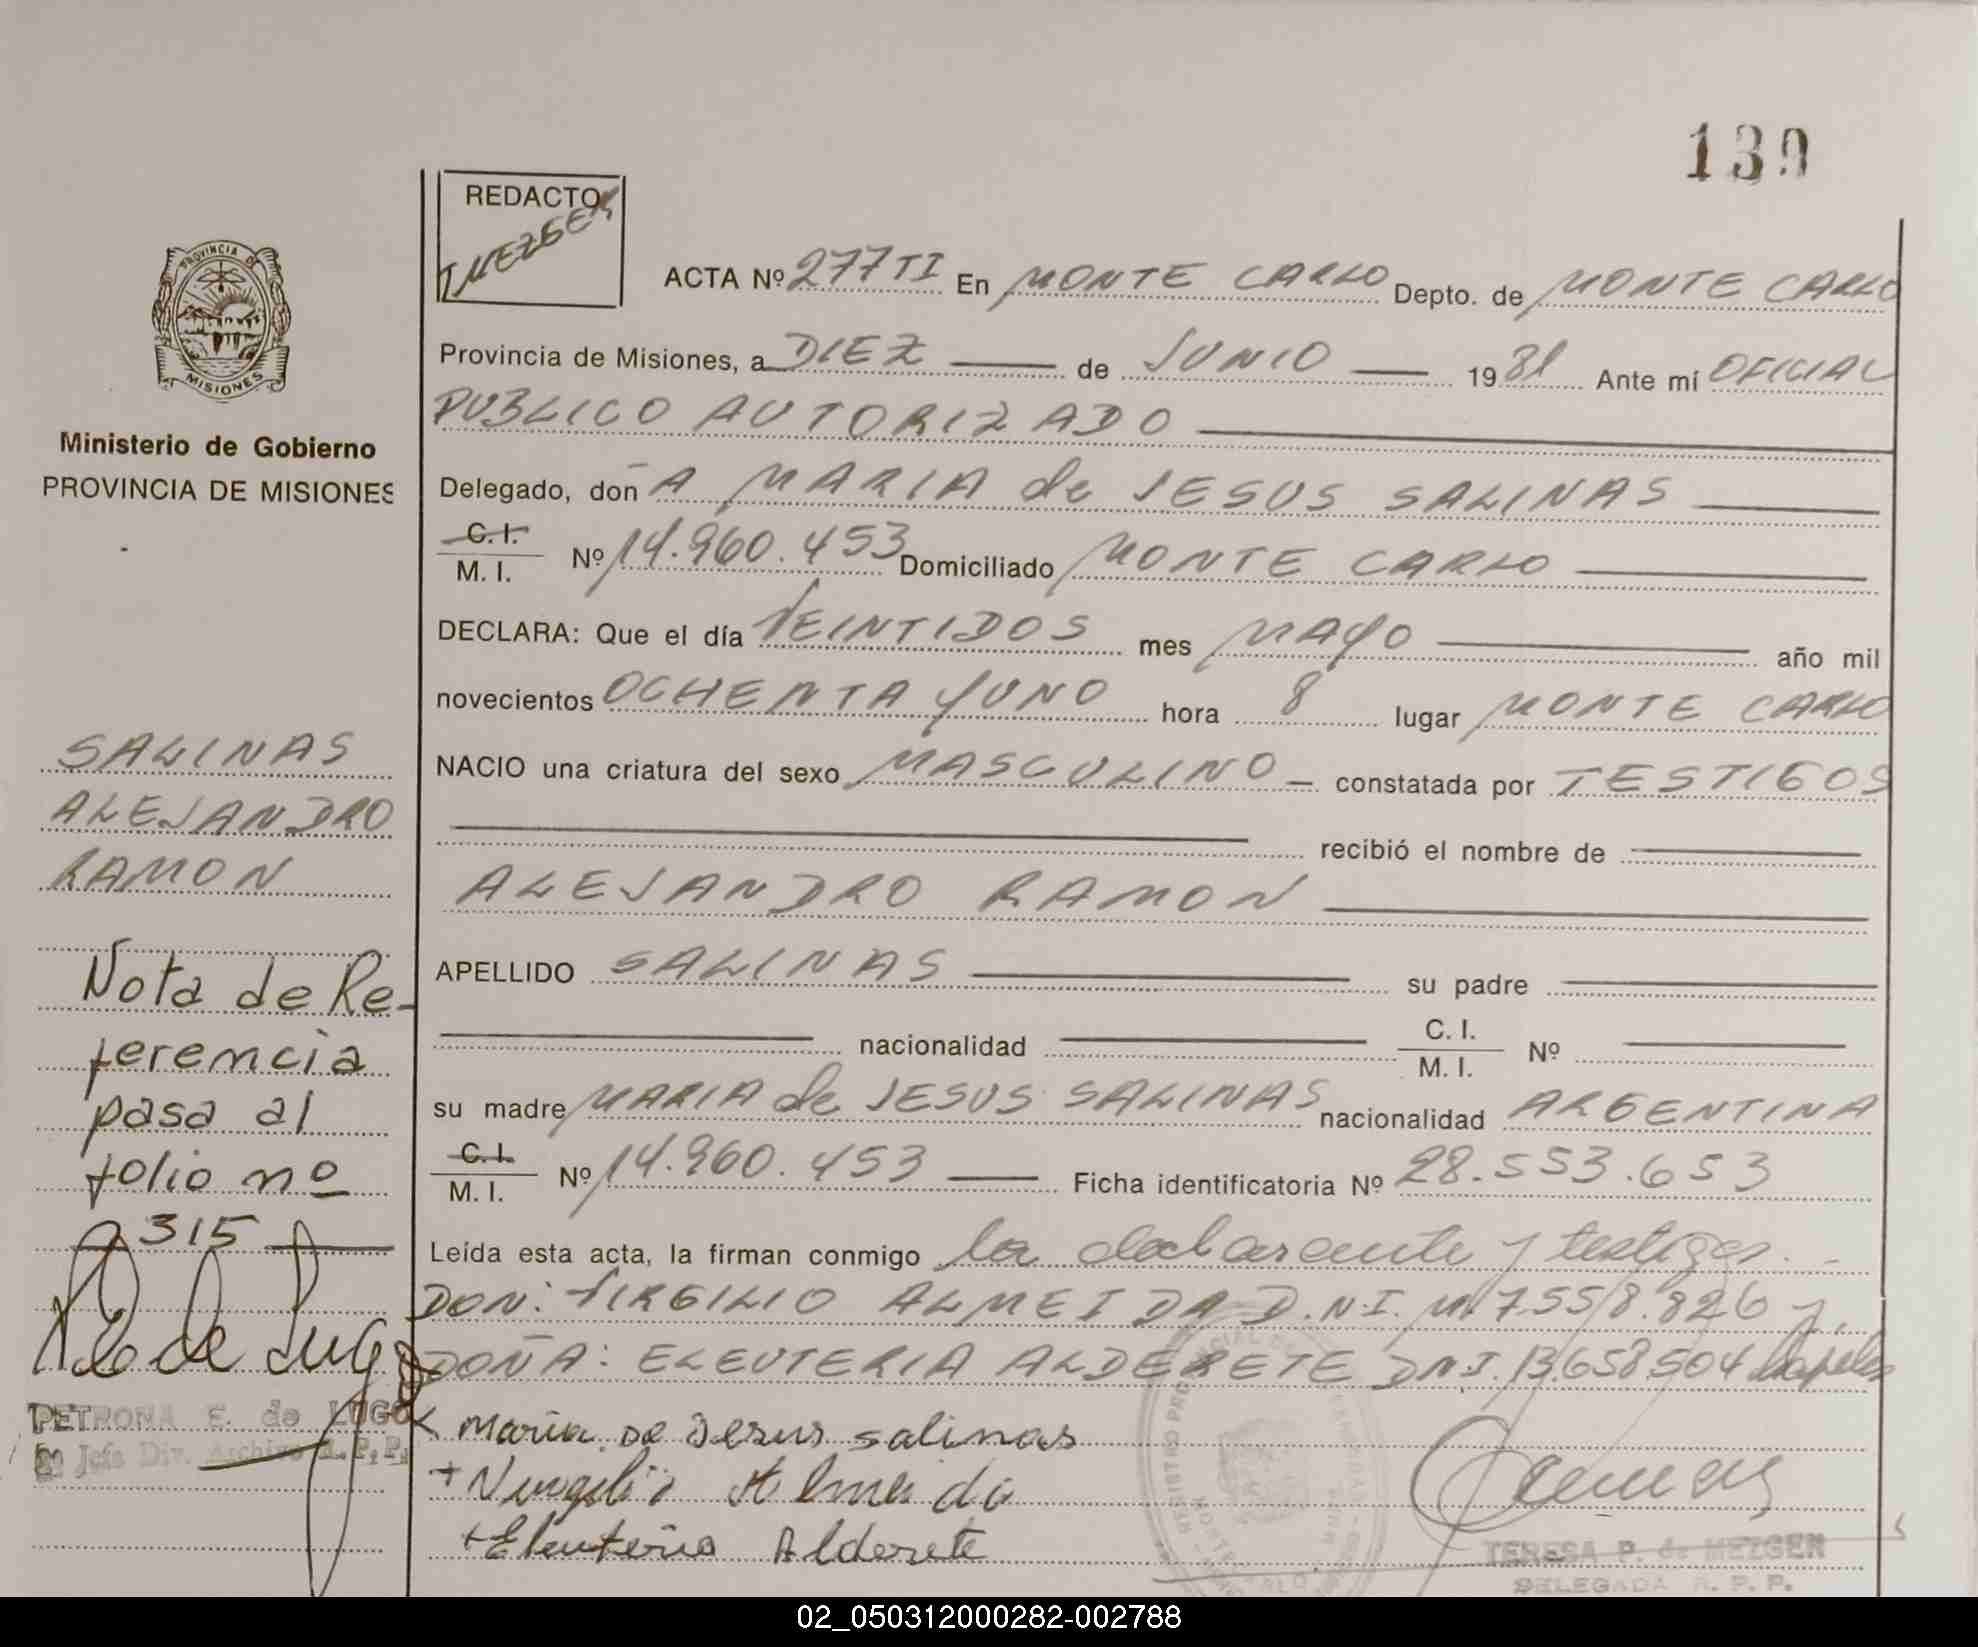 139
REDACTO
T MEZGER
ACTA Nº 277 TI En MONTE CARLO Depto. de MONTE CARLO
Provincia de Misiones, a DIEZ de JUNIO 1981 Ante mí OFICIAL
PUBLICO AUTORIZADO
Delegado, don A MARIA de JESUS SALINAS
C. I.
M. I. Nº 14.960.453 Domiciliado MONTE CARLO
DECLARA: Que el día VEINTIDOS mes MAYO año mil
novecientos OCHENTA Y UNO hora 8 lugar MONTE CARLO
NACIO una criatura del sexo MASCULINO constatada por TESTIGOS
recibió el nombre de
ALEJANDRO RAMON
APELLIDO SALINAS su padre
nacionalidad C. I.
M. I. Nº
su madre MARIA de JESUS SALINAS nacionalidad ARGENTINA
C. I.
M. I. Nº 14.960.453 Ficha identificatoria Nº 28.553.653
Leída esta acta, la firman conmigo la declarante y testigos.
DON: VIRGILIO ALMEIDA D.N.I. M. 7.558.826 y
DOÑA: ELEUTERIA ALDERETE DNI. 13.658.504
Maria De Jesus Salinas
+ Virgilio Almeida
+ Eleuteria Alderete
TERESA P. de MEZGER
DELEGADA R. P. P.
PROVINCIA DE
MISIONES
Ministerio de Gobierno
PROVINCIA DE MISIONES
SALINAS
ALEJANDRO
RAMON
Nota de Re-
ferencia
pasa al
folio nº
315
PETRONA E. de LUGO
Jefa Div. Archivo R. P. P.
02_050312000282-002788